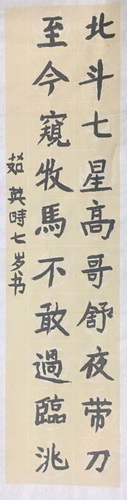 北斗七星高哥舒夜带刀
至今窺牧馬不敢過臨洮
茹英時七岁书